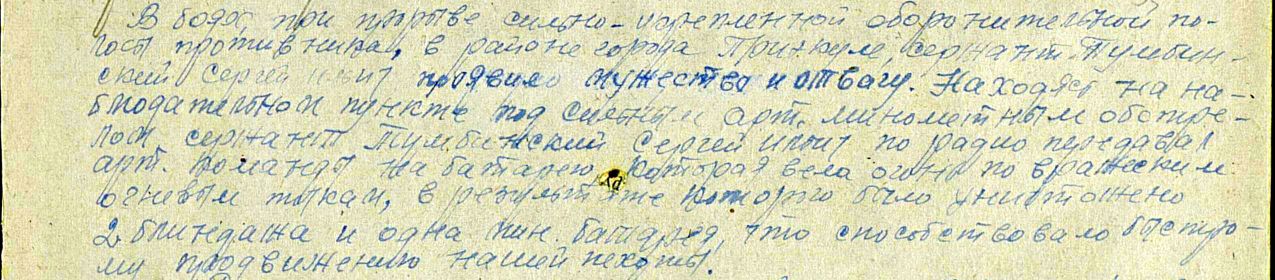 В боях при прорыве сильно-укрепленной оборонительной по-
лосы противника, в районе города Приекуле, сержант Тумбин-
ский Сергей Ильич проявил мужество и отвагу. Находясь на на-
блюдательном пункте под сильным арт. минометным обстре-
лом сержант Тумбинский Сергей Ильич по радио передавал
арт. команды на батарею, которая вела огонь по вражеским
огневым точкам, в результате которого было уничтожено
2 блиндажа и одна мин. батарея, что способствовало быстро-
му продвижению нашей пехоты.